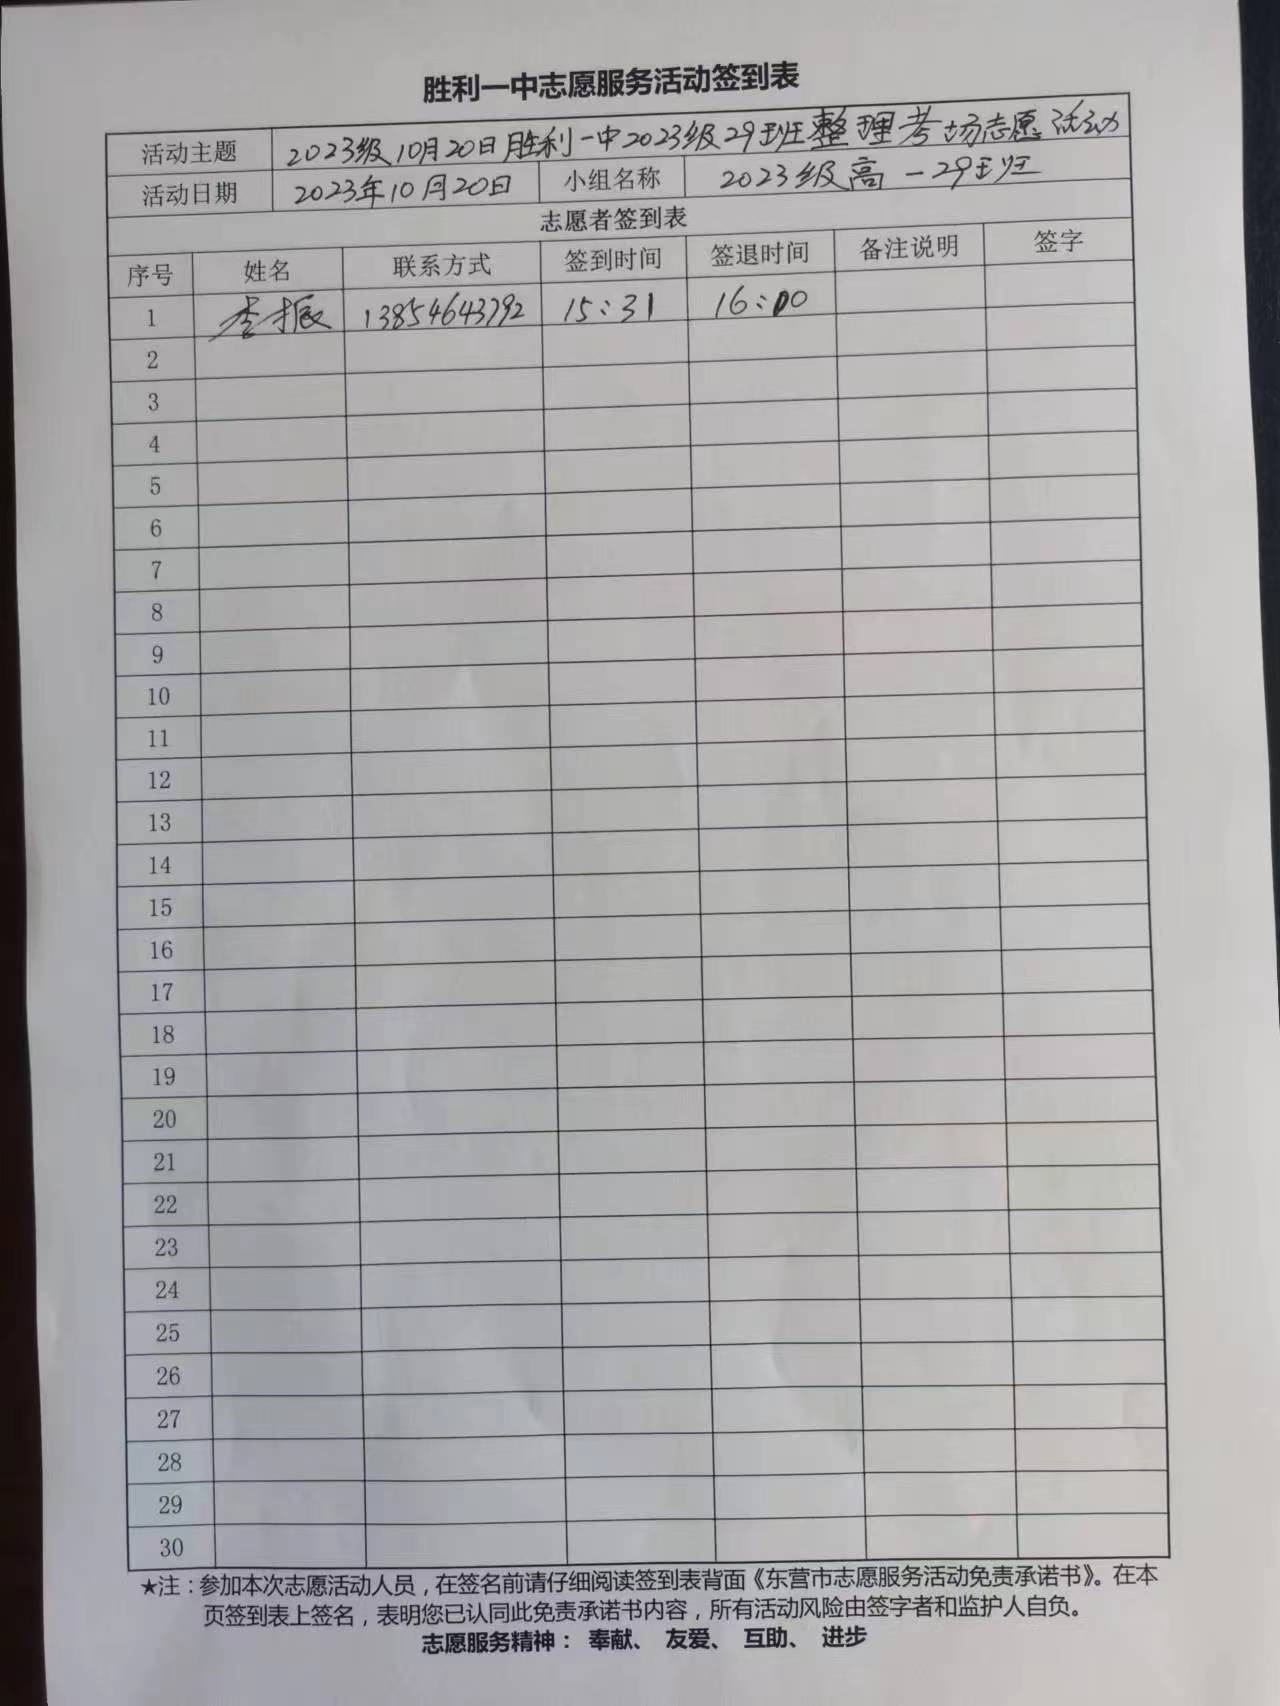 胜利一中志愿服务活动签到表
活动主题 2023级10月20日胜利一中2023级29班整理考场志愿活动
活动日期 2023年10月20日 小组名称 2023级高一29班
志愿者签到表
序号 姓名 联系方式 签到时间 签退时间 备注说明 签字
1 李振 13854643792 15:31 16:00
2
3
4
5
6
7
8
9
10
11
12
13
14
15
16
17
18
19
20
21
22
23
24
25
26
27
28
29
30
★注：参加本次志愿活动人员，在签名前请仔细阅读签到表背面《东营市志愿服务活动免责承诺书》。在本
页签到表上签名，表明您已认同此免责承诺书内容，所有活动风险由签字者和监护人自负。
志愿服务精神： 奉献、 友爱、 互助、 进步